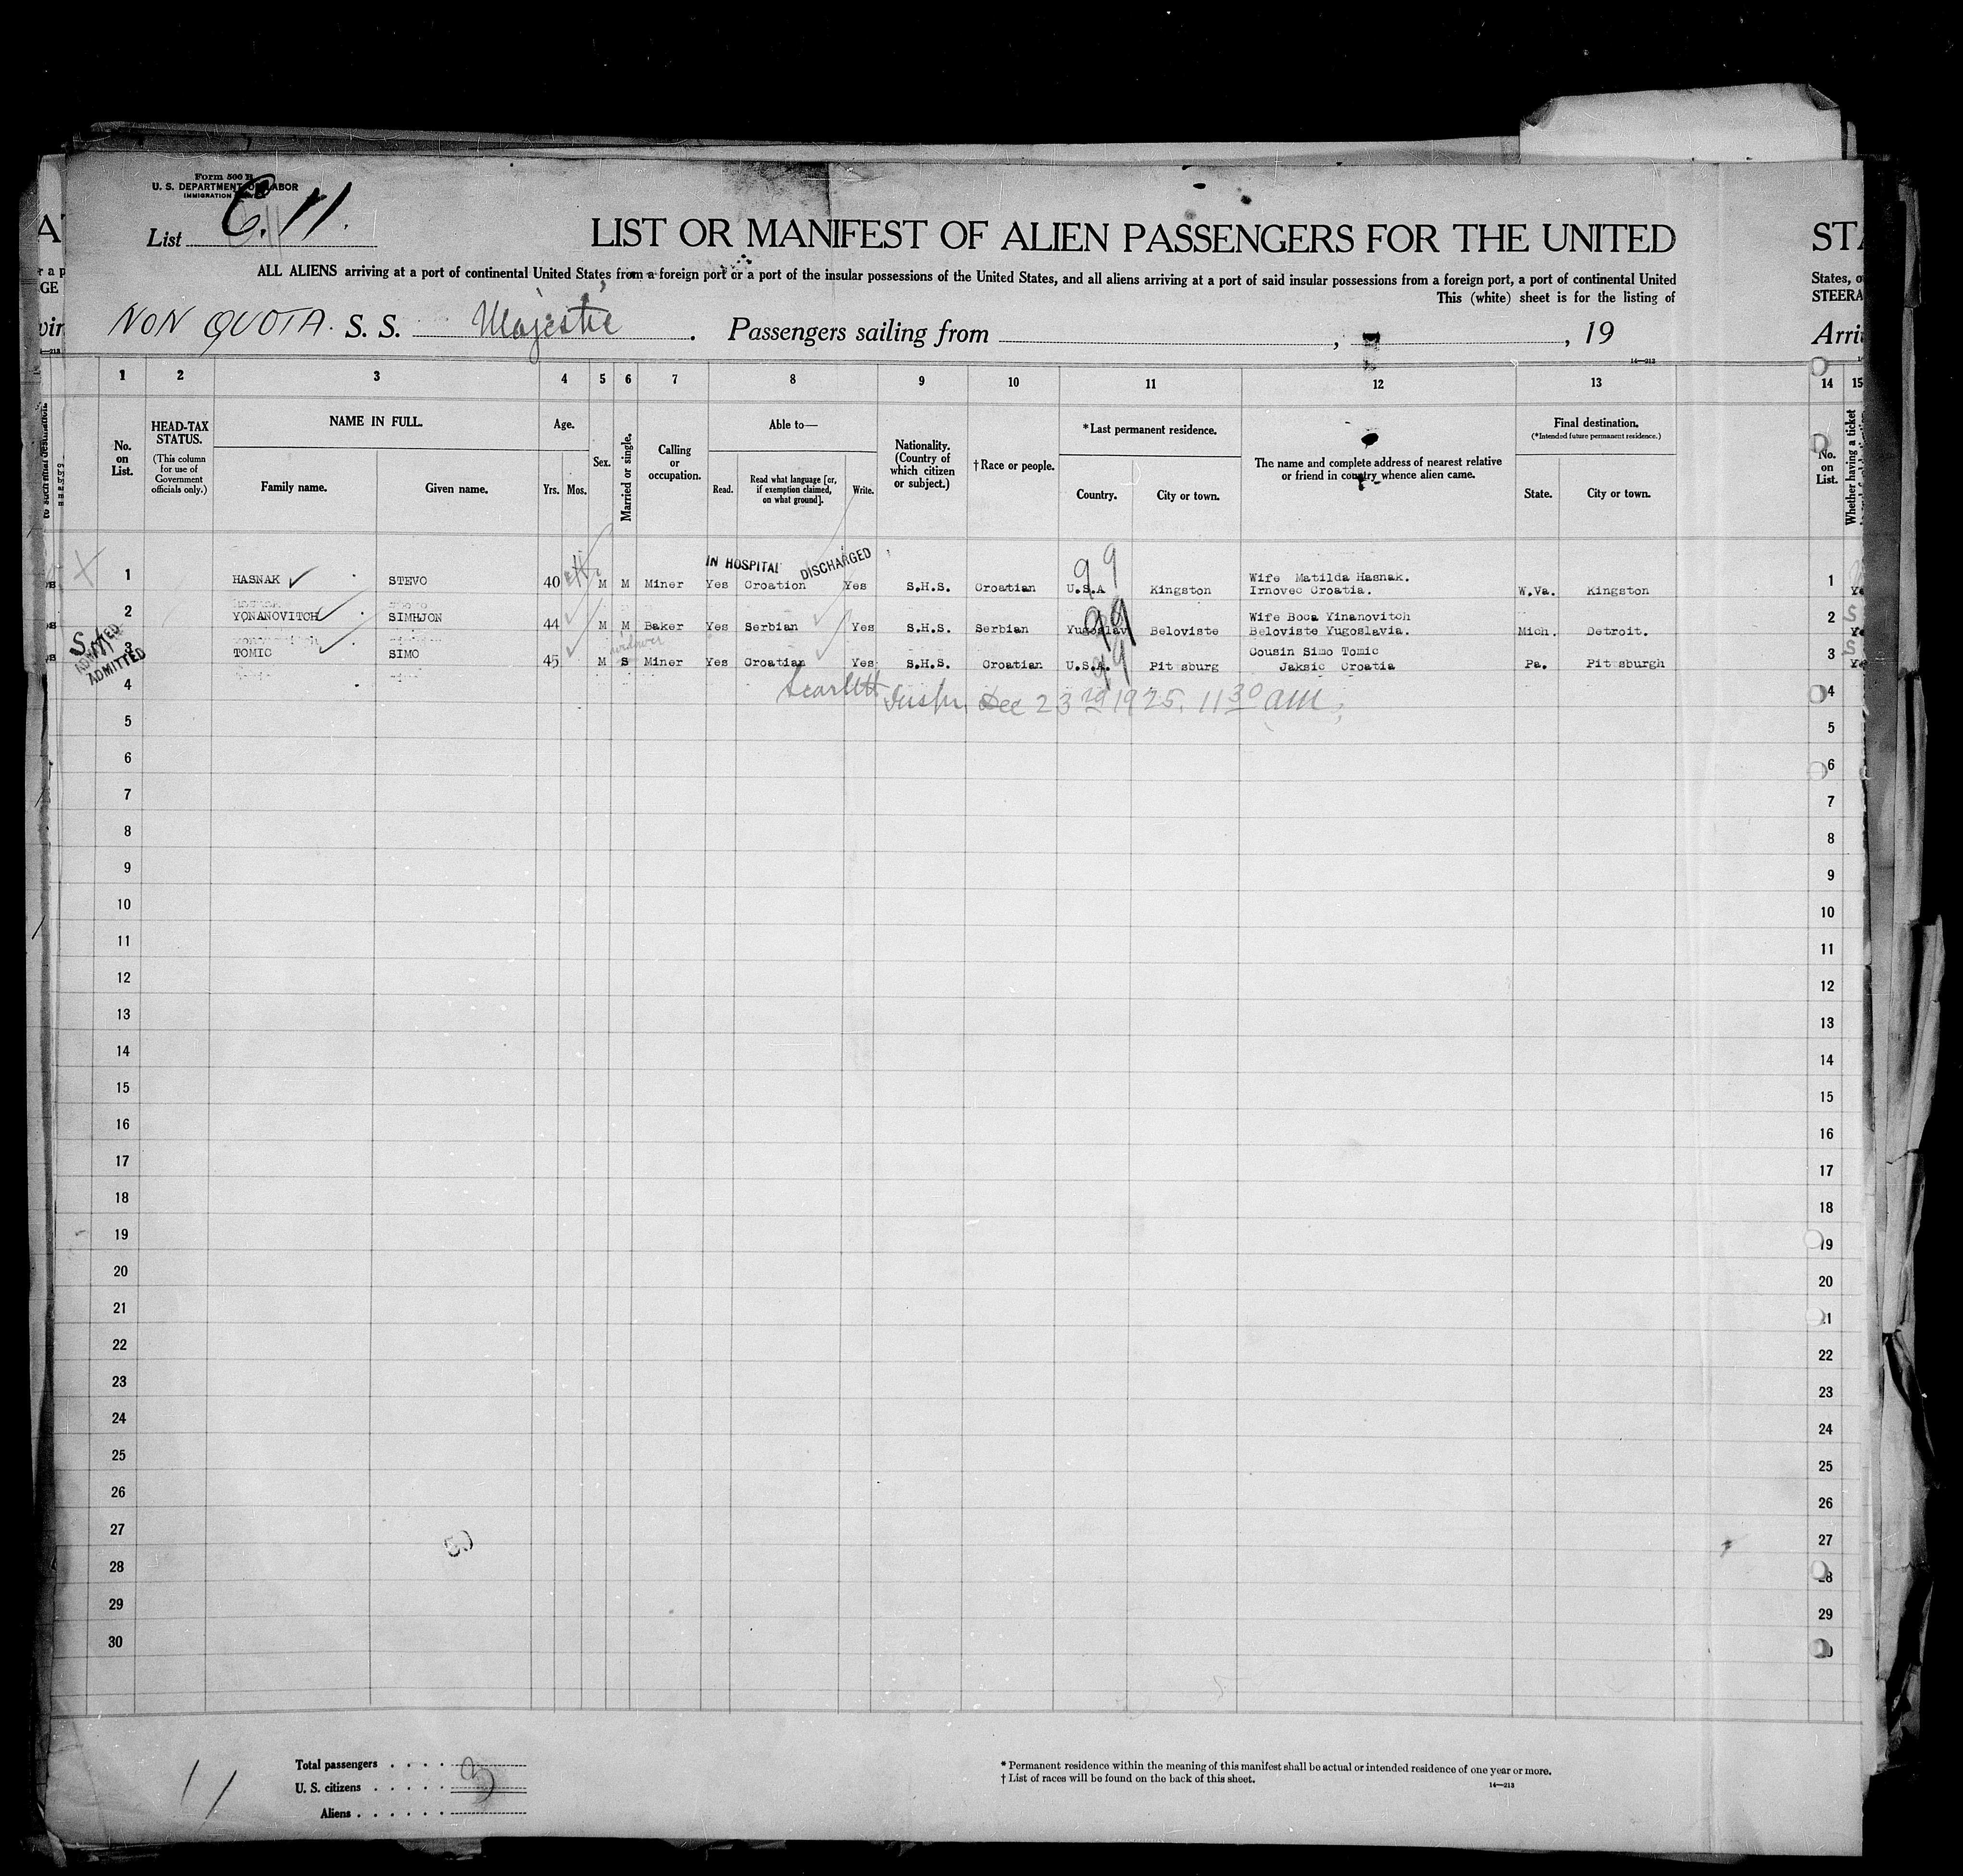 Form 500 B
U. S. DEPARTMENT OF LABOR
IMMIGRATION
List C. 11.
LIST OR MANIFEST OF ALIEN PASSENGERS FOR THE UNITED STA
ALL ALIENS arriving at a port of continental United States from a foreign port or a port of the insular possessions of the United States, and all aliens arriving at a port of said insular possessions from a foreign port, a port of continental United States, o
This (white) sheet is for the listing of STEERA
NON QUOTA. S. S. Majestic. Passengers sailing from , , 19 Arri
14—213
1 2 3 4 5 6 7 8 9 10 11 12 13 14 15
No. on List.
HEAD-TAX STATUS.
(This column for use of Government officials only.)
NAME IN FULL.
Family name. Given name.
Age.
Yrs. Mos.
Sex.
Married or single.
Calling or occupation.
Able to—
Read. Read what language [or, if exemption claimed, on what ground]. Write.
Nationality. (Country of which citizen or subject.)
†Race or people.
*Last permanent residence.
Country. City or town.
The name and complete address of nearest relative or friend in country whence alien came.
Final destination.
(*Intended future permanent residence.)
State. City or town.
No. on List.
Whether having a ticket
IN HOSPITAL DISCHARGED
1 HASNAK STEVO 40 M M Miner Yes Croation Yes S.H.S. Croatian U.S.A Kingston Wife Matilda Hasnak. Irnovec Croatia. W.Va. Kingston 1
99
2 YONANOVITCH SIMHJON 44 M M Baker Yes Serbian Yes S.H.S. Serbian Yugoslav Beloviste Wife Boca Yinanovitch Beloviste Yugoslavia. Mich. Detroit. 2
99
widower
ADMITTED
ADMITTED
3 TOMIC SIMO 45 M S Miner Yes Croatian Yes S.H.S. Croatian U.S.A. Pit sburg Cousin Simo Tomic Jaksic Croatia Pa. Pit sburgh 3
99
4 Scarlett Inspr. Dec 23rd 1925. 11 30 am 4
5 5
6 6
7 7
8 8
9 9
10 10
11 11
12 12
13 13
14 14
15 15
16 16
17 17
18 18
19 19
20 20
21 21
22 22
23 23
24 24
25 25
26 26
27 27
28 28
29 29
30
11
Total passengers
U. S. citizens
Aliens
3
* Permanent residence within the meaning of this manifest shall be actual or intended residence of one year or more.
† List of races will be found on the back of this sheet.
14—213